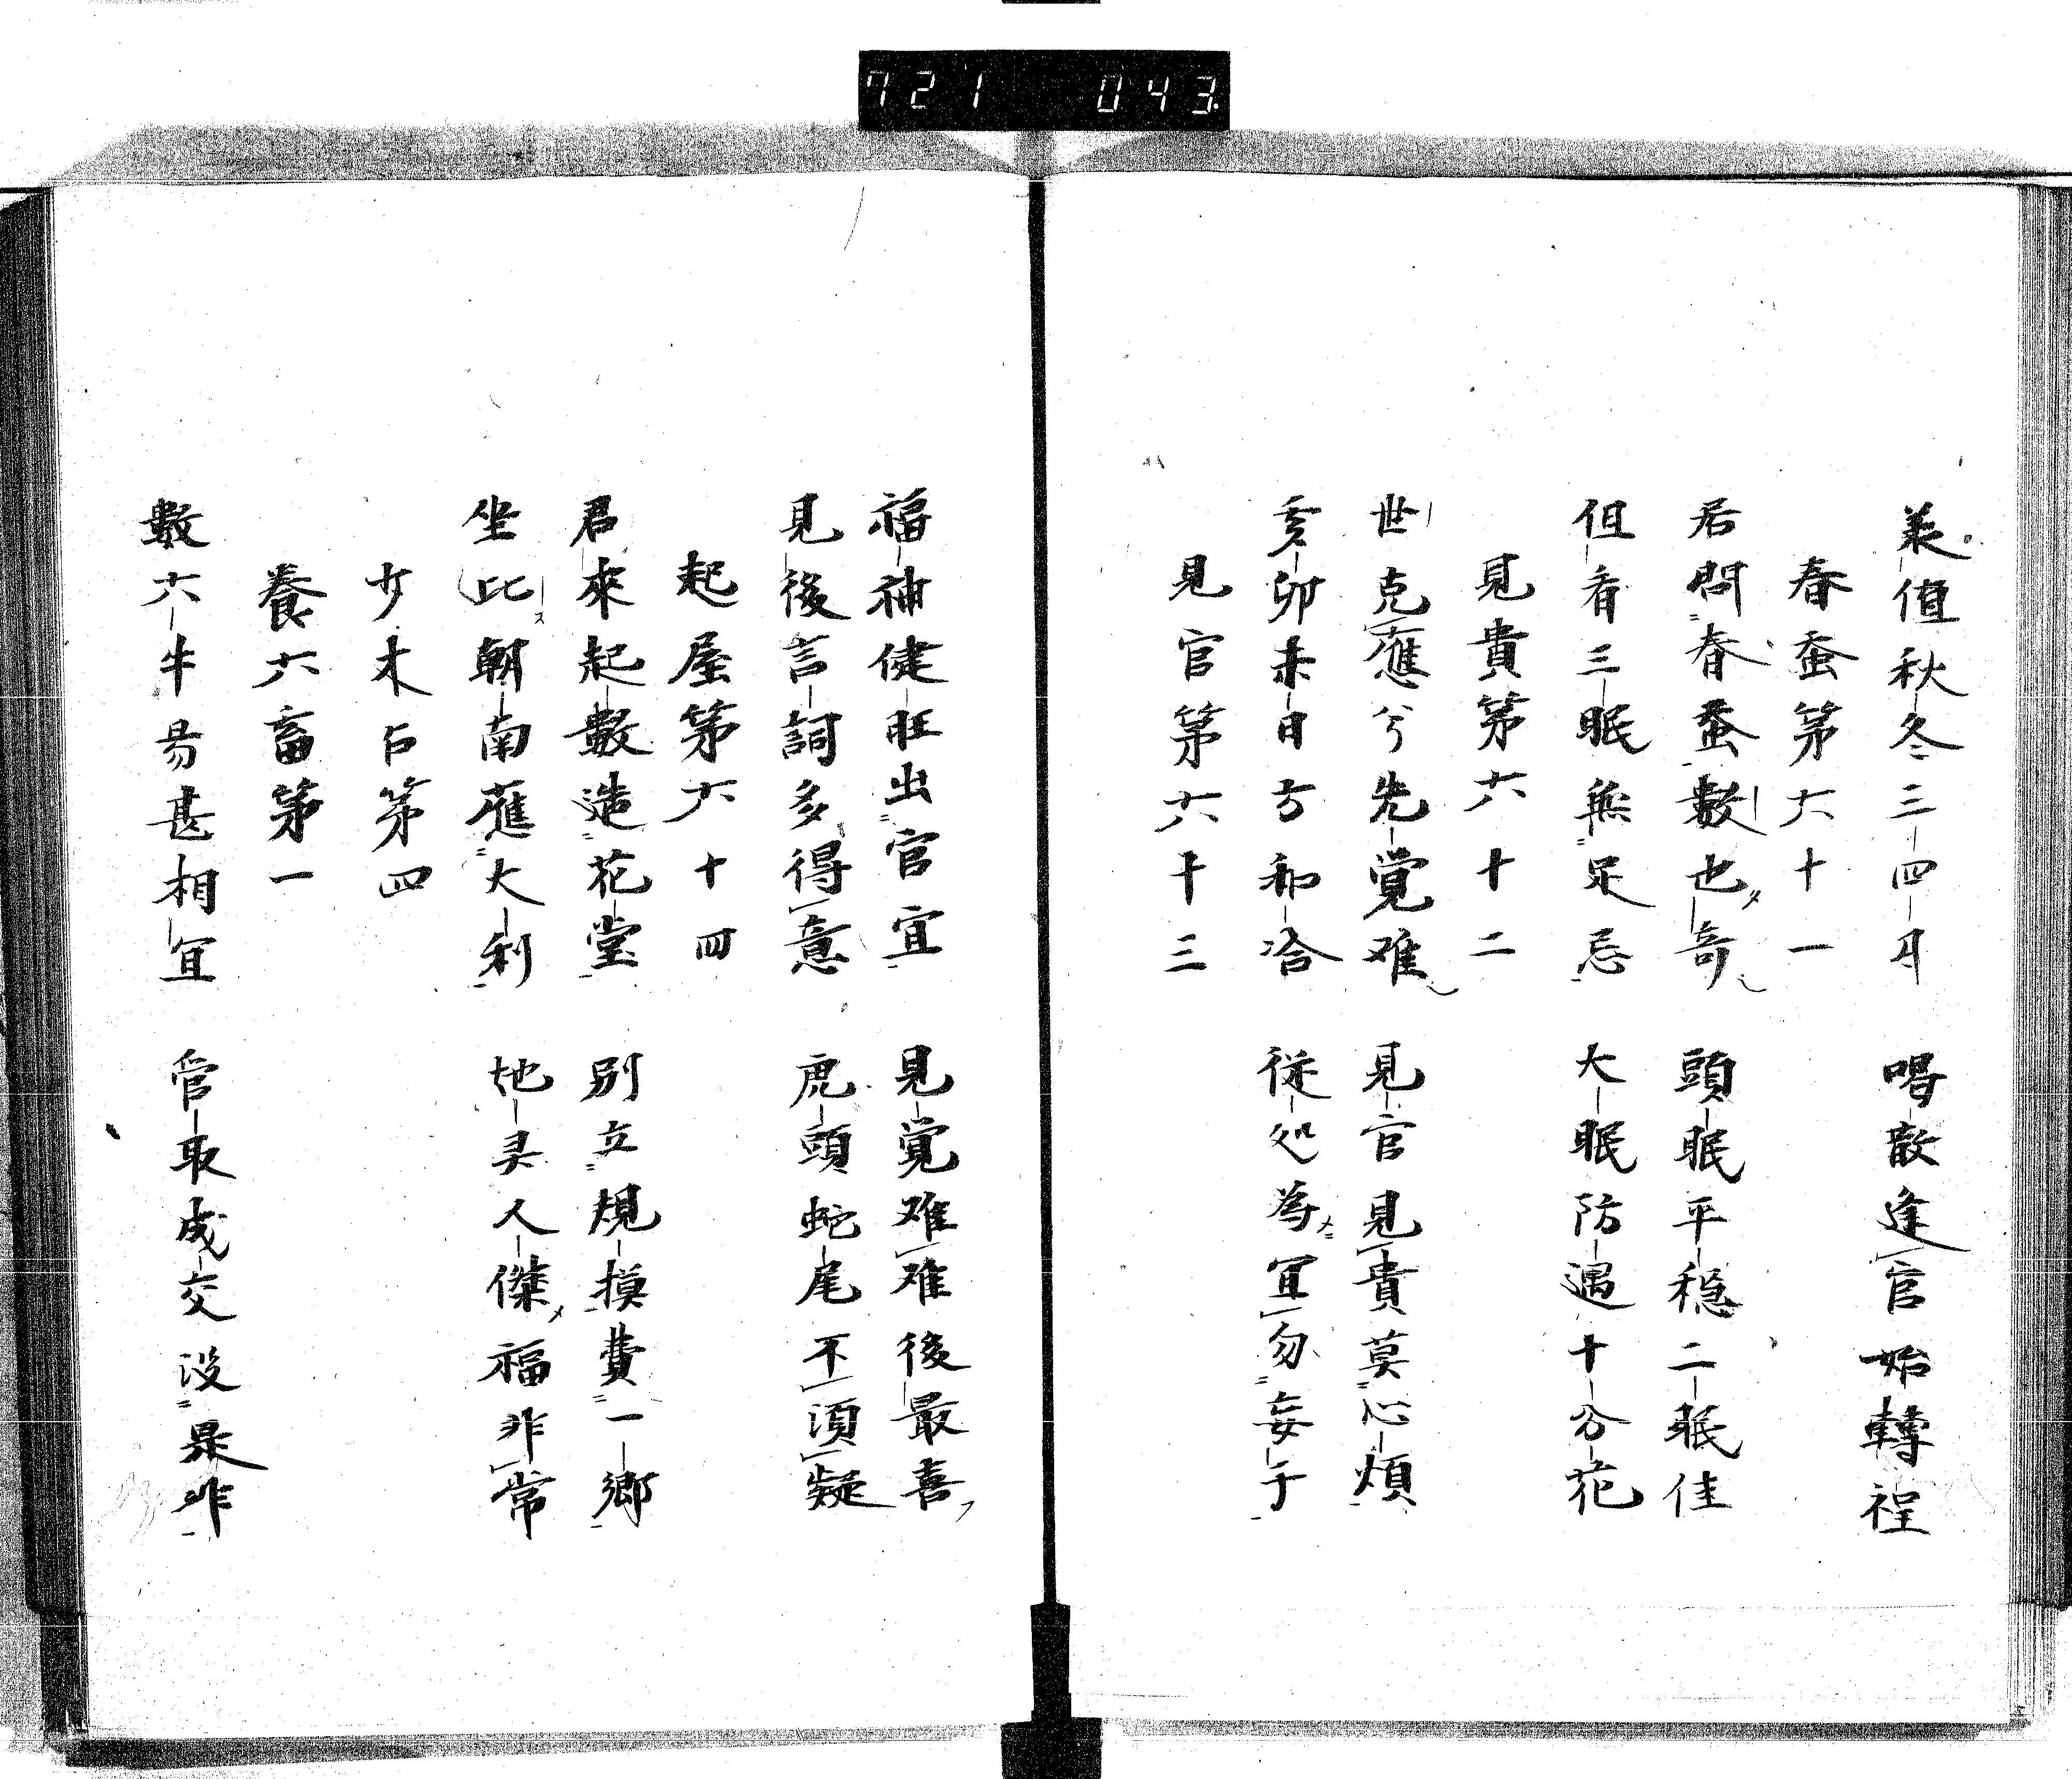 721 043
義值秋冬三四月 喝散逢官始轉裎
春蚕第六十一
君問春蚕數也奇 頭眠平穏二眠佳
但看三眠無足忌 大眠防遇十分花
見貴第六十二
世克應兮先覚难 見官見貴莫心煩
亥卯未日方和合 従处為宜勿妄于
見官第六十三
福神健旺出官宜 見覚难难後最喜
見後言詞多得意 虎頭蛇尾不須疑
起屋第六十四
君來起數造花堂 別立規摸費一鄉
坐比朝南應大利 地灵人傑福非常
少木占第四
養六畜第一
數六牛昜甚相宜 管取成交没是非